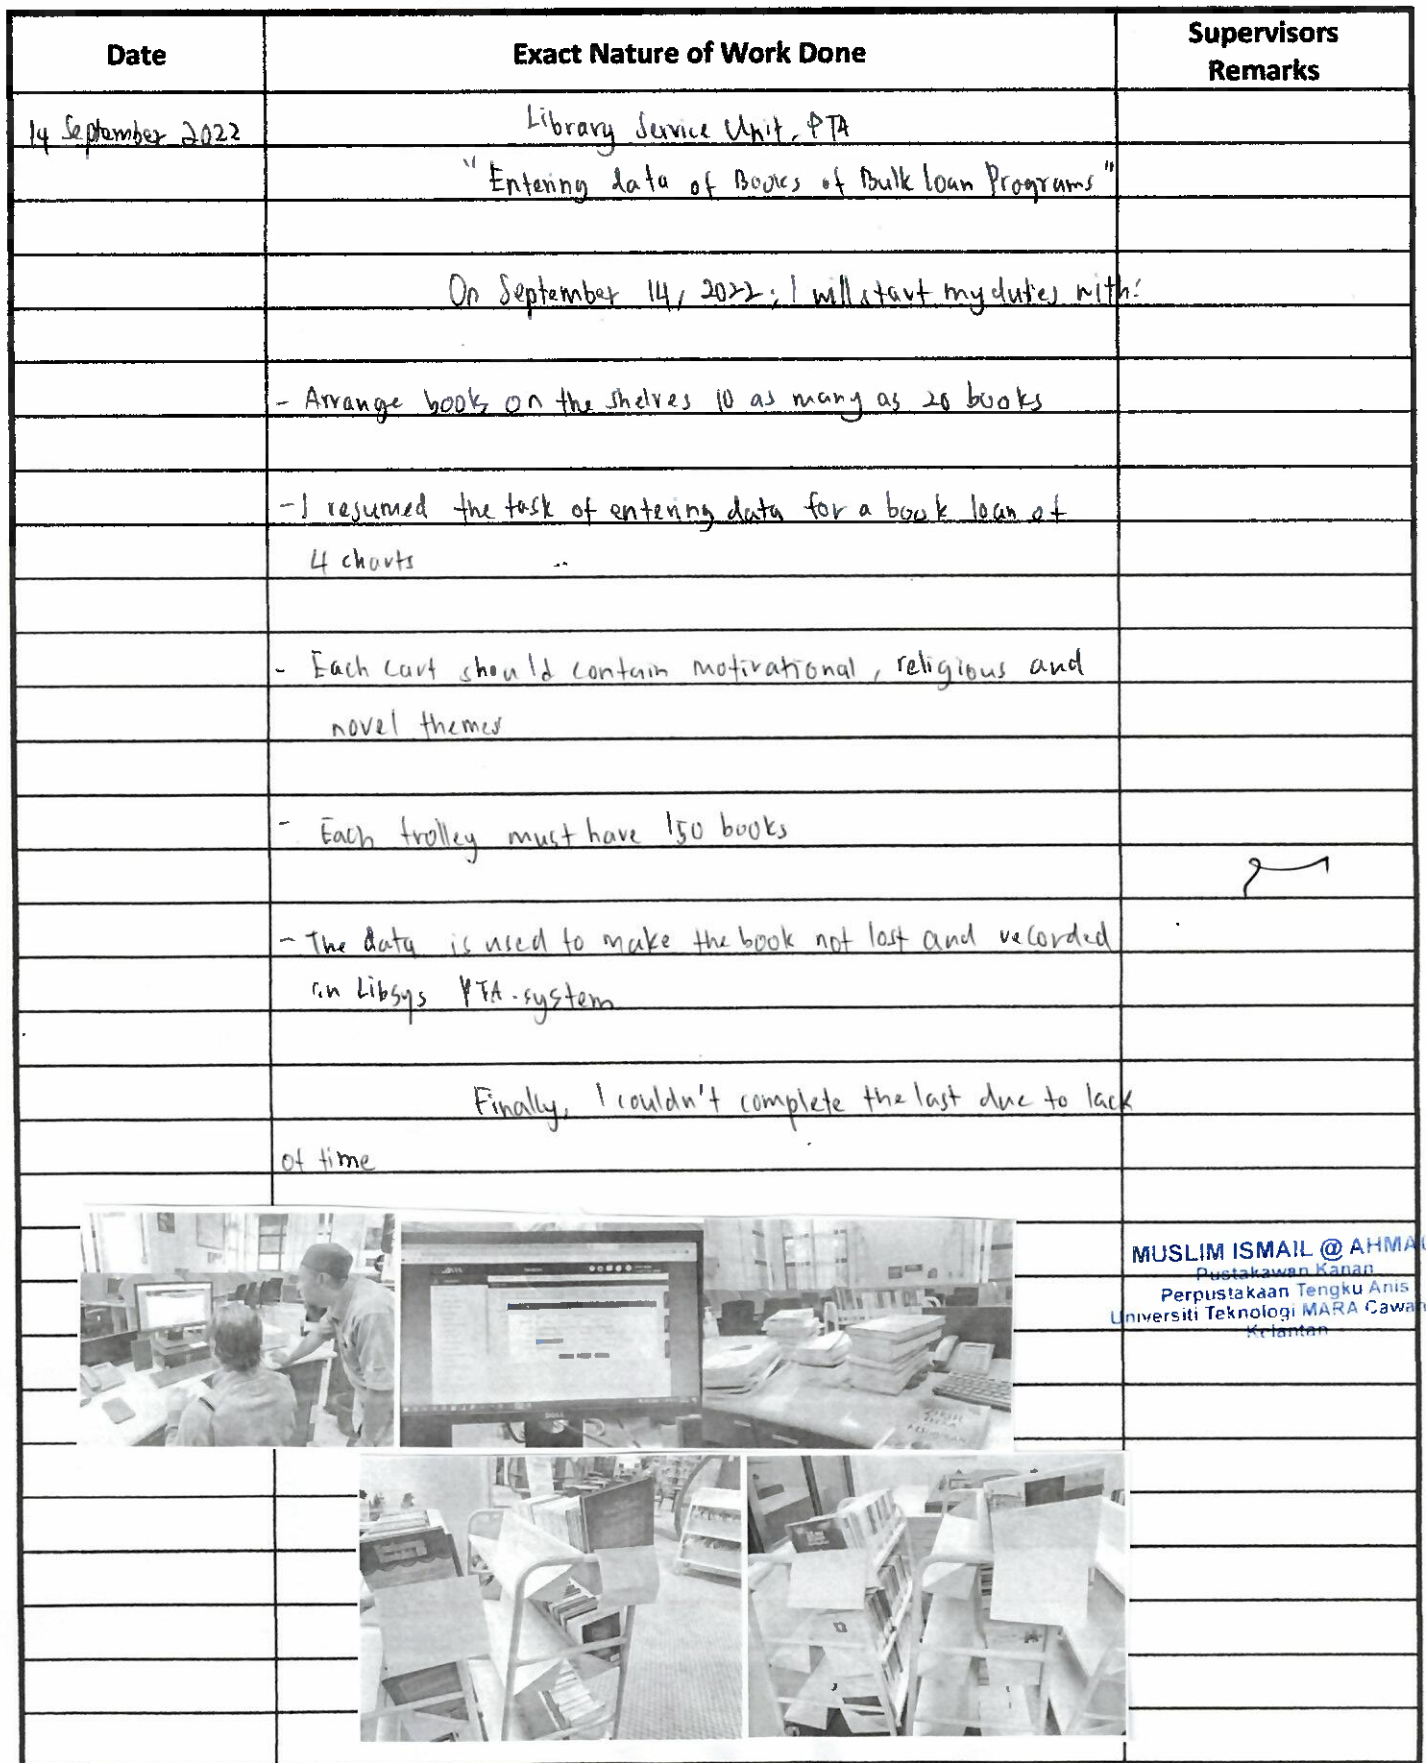 Date
Exact Nature of Work Done
Supervisors
Remarks
14 September 2022
Library Service Unit, PTA
"Entering data of Books of Bulk loan Programs"
On September 14, 2022, I will start my duties with:
- Arrange books on the shelves 10 as many as 20 books
- I resumed the task of entering data for a book loan of
4 charts
- Each cart should contain motivational, religious and
novel themes
- Each trolley must have 150 books
- The data is used to make the book not lost and recorded
in Libsys PTA system
Finally, I couldn't complete the last due to lack
of time
MUSLIM ISMAIL @ AHMA
Pustakawan Kanan
Perpustakaan Tengku Anis
Universiti Teknologi MARA Cawan
Kelantan
DELL